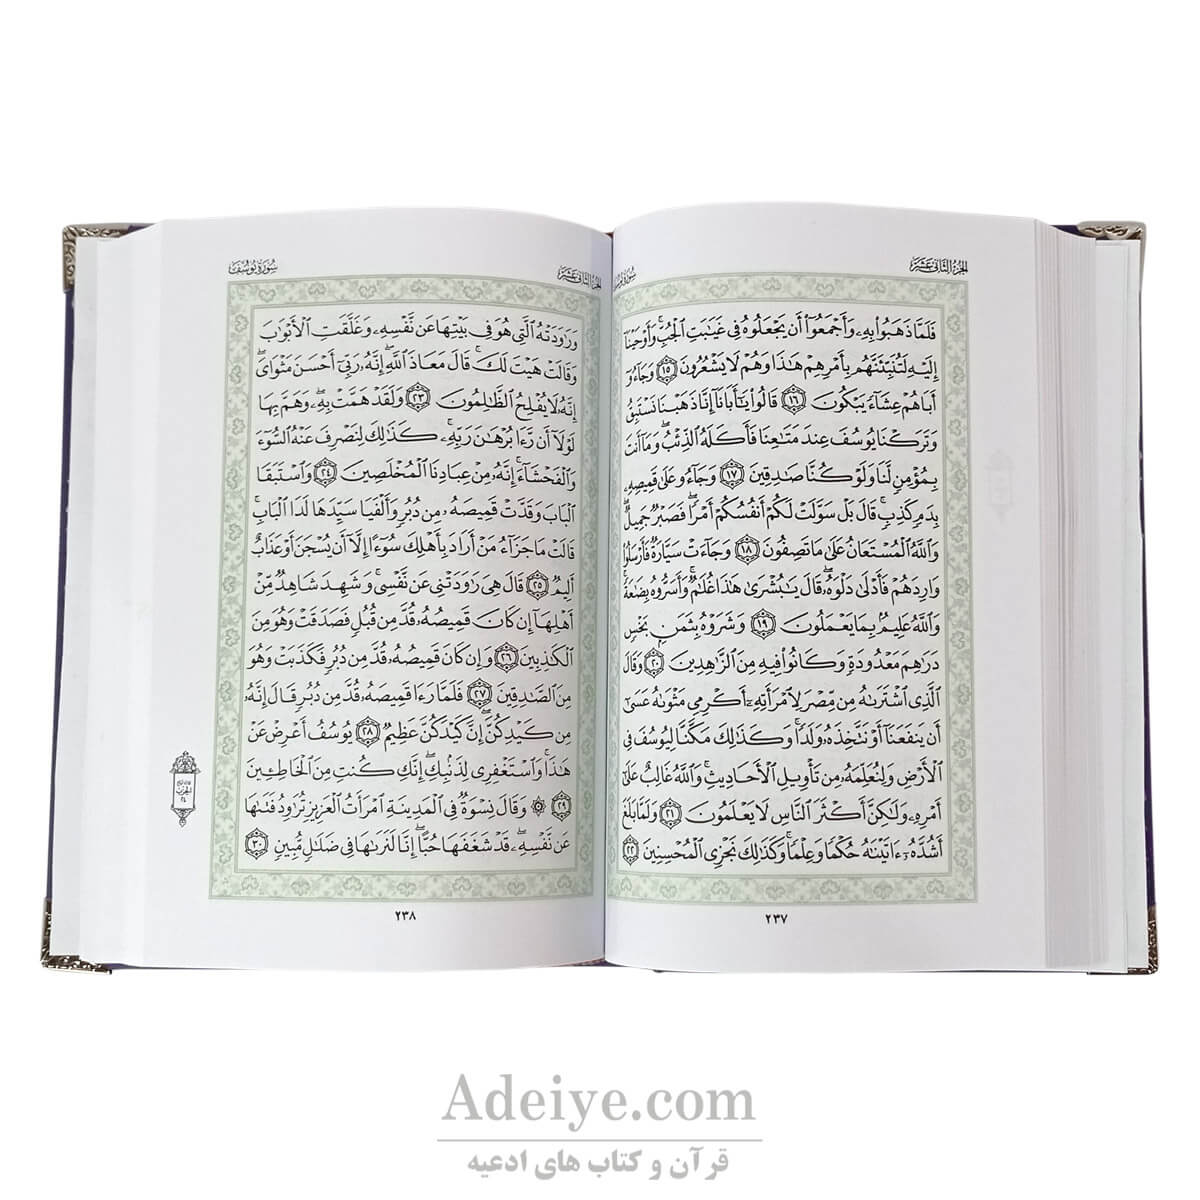 الجزء الثاني عشر
سورة يوسف
فَلَمَّا ذَهَبُوا۟ بِهِۦ وَأَجْمَعُوٓا۟ أَن يَجْعَلُوهُ فِى غَيَٰبَتِ ٱلْجُبِّ ۚ وَأَوْحَيْنَآ
إِلَيْهِ لَتُنَبِّئَنَّهُم بِأَمْرِهِمْ هَٰذَا وَهُمْ لَا يَشْعُرُونَ ١٥ وَجَآءُوٓ
أَبَاهُمْ عِشَآءً يَبْكُونَ ١٦ قَالُوا۟ يَٰٓأَبَانَآ إِنَّا ذَهَبْنَا نَسْتَبِقُ
وَتَرَكْنَا يُوسُفَ عِندَ مَتَٰعِنَا فَأَكَلَهُ ٱلذِّئْبُ ۖ وَمَآ أَنتَ
بِمُؤْمِنٍ لَّنَا وَلَوْ كُنَّا صَٰدِقِينَ ١٧ وَجَآءُو عَلَىٰ قَمِيصِهِۦ
بِدَمٍ كَذِبٍ ۚ قَالَ بَلْ سَوَّلَتْ لَكُمْ أَنفُسُكُمْ أَمْرًا ۖ فَصَبْرٌ جَمِيلٌ ۖ
وَٱللَّهُ ٱلْمُسْتَعَانُ عَلَىٰ مَا تَصِفُونَ ١٨ وَجَآءَتْ سَيَّارَةٌ فَأَرْسَلُوا۟
وَارِدَهُمْ فَأَدْلَىٰ دَلْوَهُۥ ۖ قَالَ يَٰبُشْرَىٰ هَٰذَا غُلَٰمٌ ۚ وَأَسَرُّوهُ بِضَٰعَةً ۚ
وَٱللَّهُ عَلِيمٌۢ بِمَا يَعْمَلُونَ ١٩ وَشَرَوْهُ بِثَمَنٍۭ بَخْسٍ
دَرَٰهِمَ مَعْدُودَةٍ وَكَانُوا۟ فِيهِ مِنَ ٱلزَّٰهِدِينَ ٢٠ وَقَالَ
ٱلَّذِى ٱشْتَرَىٰهُ مِن مِّصْرَ لِٱمْرَأَتِهِۦٓ أَكْرِمِى مَثْوَىٰهُ عَسَىٰٓ
أَن يَنفَعَنَآ أَوْ نَتَّخِذَهُۥ وَلَدًا ۚ وَكَذَٰلِكَ مَكَّنَّا لِيُوسُفَ فِى
ٱلْأَرْضِ وَلِنُعَلِّمَهُۥ مِن تَأْوِيلِ ٱلْأَحَادِيثِ ۚ وَٱللَّهُ غَالِبٌ عَلَىٰٓ
أَمْرِهِۦ وَلَٰكِنَّ أَكْثَرَ ٱلنَّاسِ لَا يَعْلَمُونَ ٢١ وَلَمَّا بَلَغَ
أَشُدَّهُۥٓ ءَاتَيْنَٰهُ حُكْمًا وَعِلْمًا ۚ وَكَذَٰلِكَ نَجْزِى ٱلْمُحْسِنِينَ ٢٢
٢٣٧
الجزء الثاني عشر
سورة يوسف
وَرَٰوَدَتْهُ ٱلَّتِى هُوَ فِى بَيْتِهَا عَن نَّفْسِهِۦ وَغَلَّقَتِ ٱلْأَبْوَٰبَ
وَقَالَتْ هَيْتَ لَكَ ۚ قَالَ مَعَاذَ ٱللَّهِ ۖ إِنَّهُۥ رَبِّىٓ أَحْسَنَ مَثْوَاىَ ۖ
إِنَّهُۥ لَا يُفْلِحُ ٱلظَّٰلِمُونَ ٢٣ وَلَقَدْ هَمَّتْ بِهِۦ ۖ وَهَمَّ بِهَا
لَوْلَآ أَن رَّءَا بُرْهَٰنَ رَبِّهِۦ ۚ كَذَٰلِكَ لِنَصْرِفَ عَنْهُ ٱلسُّوٓءَ
وَٱلْفَحْشَآءَ ۚ إِنَّهُۥ مِنْ عِبَادِنَا ٱلْمُخْلَصِينَ ٢٤ وَٱسْتَبَقَا
ٱلْبَابَ وَقَدَّتْ قَمِيصَهُۥ مِن دُبُرٍ وَأَلْفَيَا سَيِّدَهَا لَدَا ٱلْبَابِ ۚ
قَالَتْ مَا جَزَآءُ مَنْ أَرَادَ بِأَهْلِكَ سُوٓءًا إِلَّآ أَن يُسْجَنَ أَوْ عَذَابٌ
أَلِيمٌ ٢٥ قَالَ هِىَ رَٰوَدَتْنِى عَن نَّفْسِى ۚ وَشَهِدَ شَاهِدٌ مِّنْ
أَهْلِهَآ إِن كَانَ قَمِيصُهُۥ قُدَّ مِن قُبُلٍ فَصَدَقَتْ وَهُوَ مِنَ
ٱلْكَٰذِبِينَ ٢٦ وَإِن كَانَ قَمِيصُهُۥ قُدَّ مِن دُبُرٍ فَكَذَبَتْ وَهُوَ
مِنَ ٱلصَّٰدِقِينَ ٢٧ فَلَمَّا رَءَا قَمِيصَهُۥ قُدَّ مِن دُبُرٍ قَالَ إِنَّهُۥ
مِن كَيْدِكُنَّ ۖ إِنَّ كَيْدَكُنَّ عَظِيمٌ ٢٨ يُوسُفُ أَعْرِضْ عَنْ
هَٰذَا ۚ وَٱسْتَغْفِرِى لِذَنۢبِكِ ۖ إِنَّكِ كُنتِ مِنَ ٱلْخَاطِـِٔينَ
٢٩ ۞ وَقَالَ نِسْوَةٌ فِى ٱلْمَدِينَةِ ٱمْرَأَتُ ٱلْعَزِيزِ تُرَٰوِدُ فَتَىٰهَا
عَن نَّفْسِهِۦ ۖ قَدْ شَغَفَهَا حُبًّا ۖ إِنَّا لَنَرَىٰهَا فِى ضَلَٰلٍ مُّبِينٍ ٣٠
الحزب
٢٤
٢٣٨
Adeiye.com
قرآن و کتاب های ادعیه